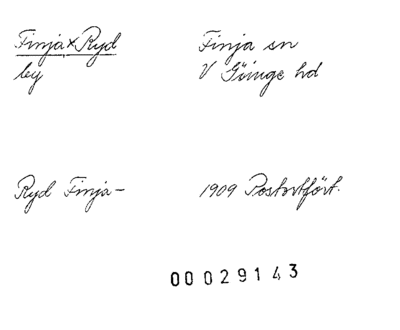 Finja×Ryd
by
Finja sn
V Göinge hd
Ryd Finja-
1909 Postortfört.
00029143